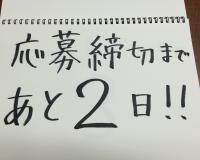 応募締切まで
あと2日!!